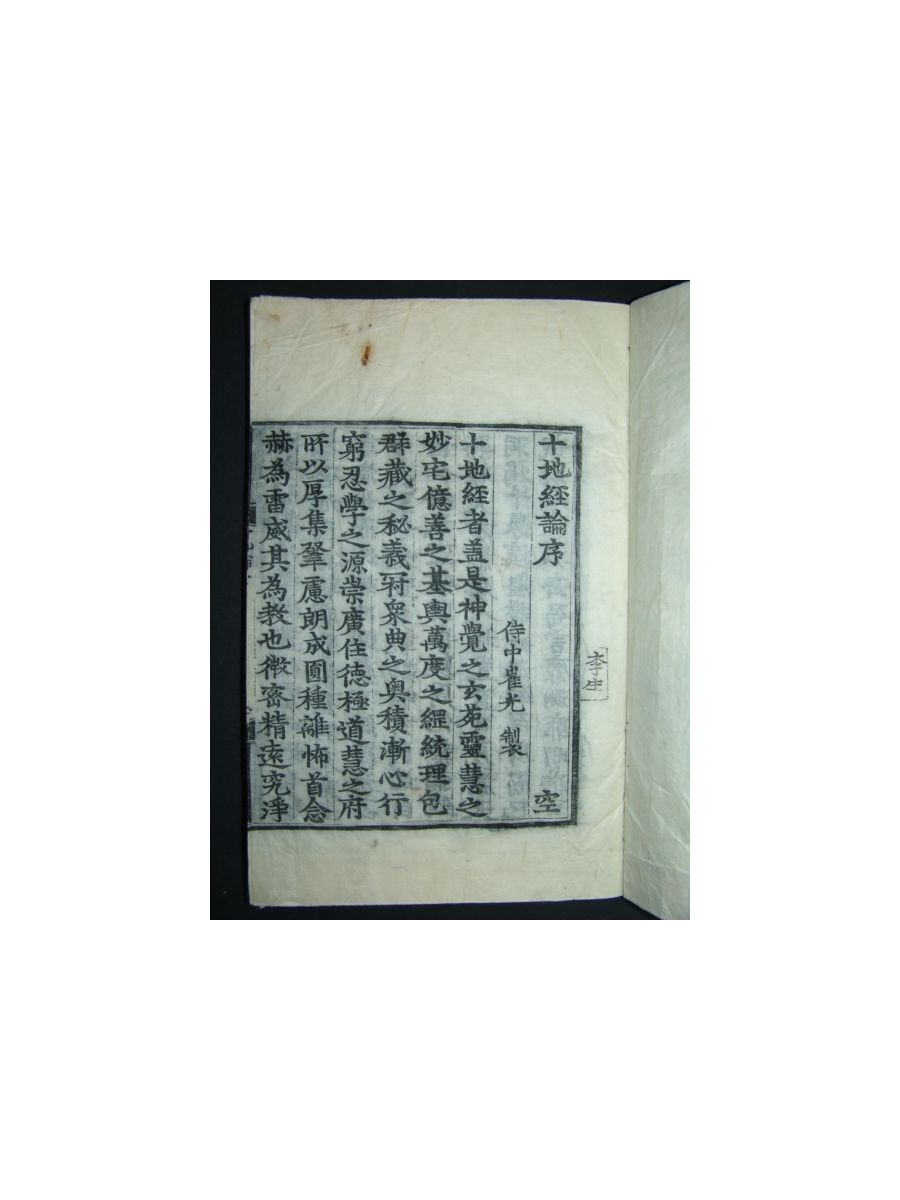 李生
十地經論序 空
侍中崔光 製
十地經者盖是神覺之玄苑靈慧之
妙宅億善之基輿萬度之綱統理包
群藏之秘義冠衆典之奥積漸心行
窮忍學之源崇廣住德極道慧之府
所以厚集肇慮朗成圓種離怖首念
赫為雷威其為教也微密精遠究淨